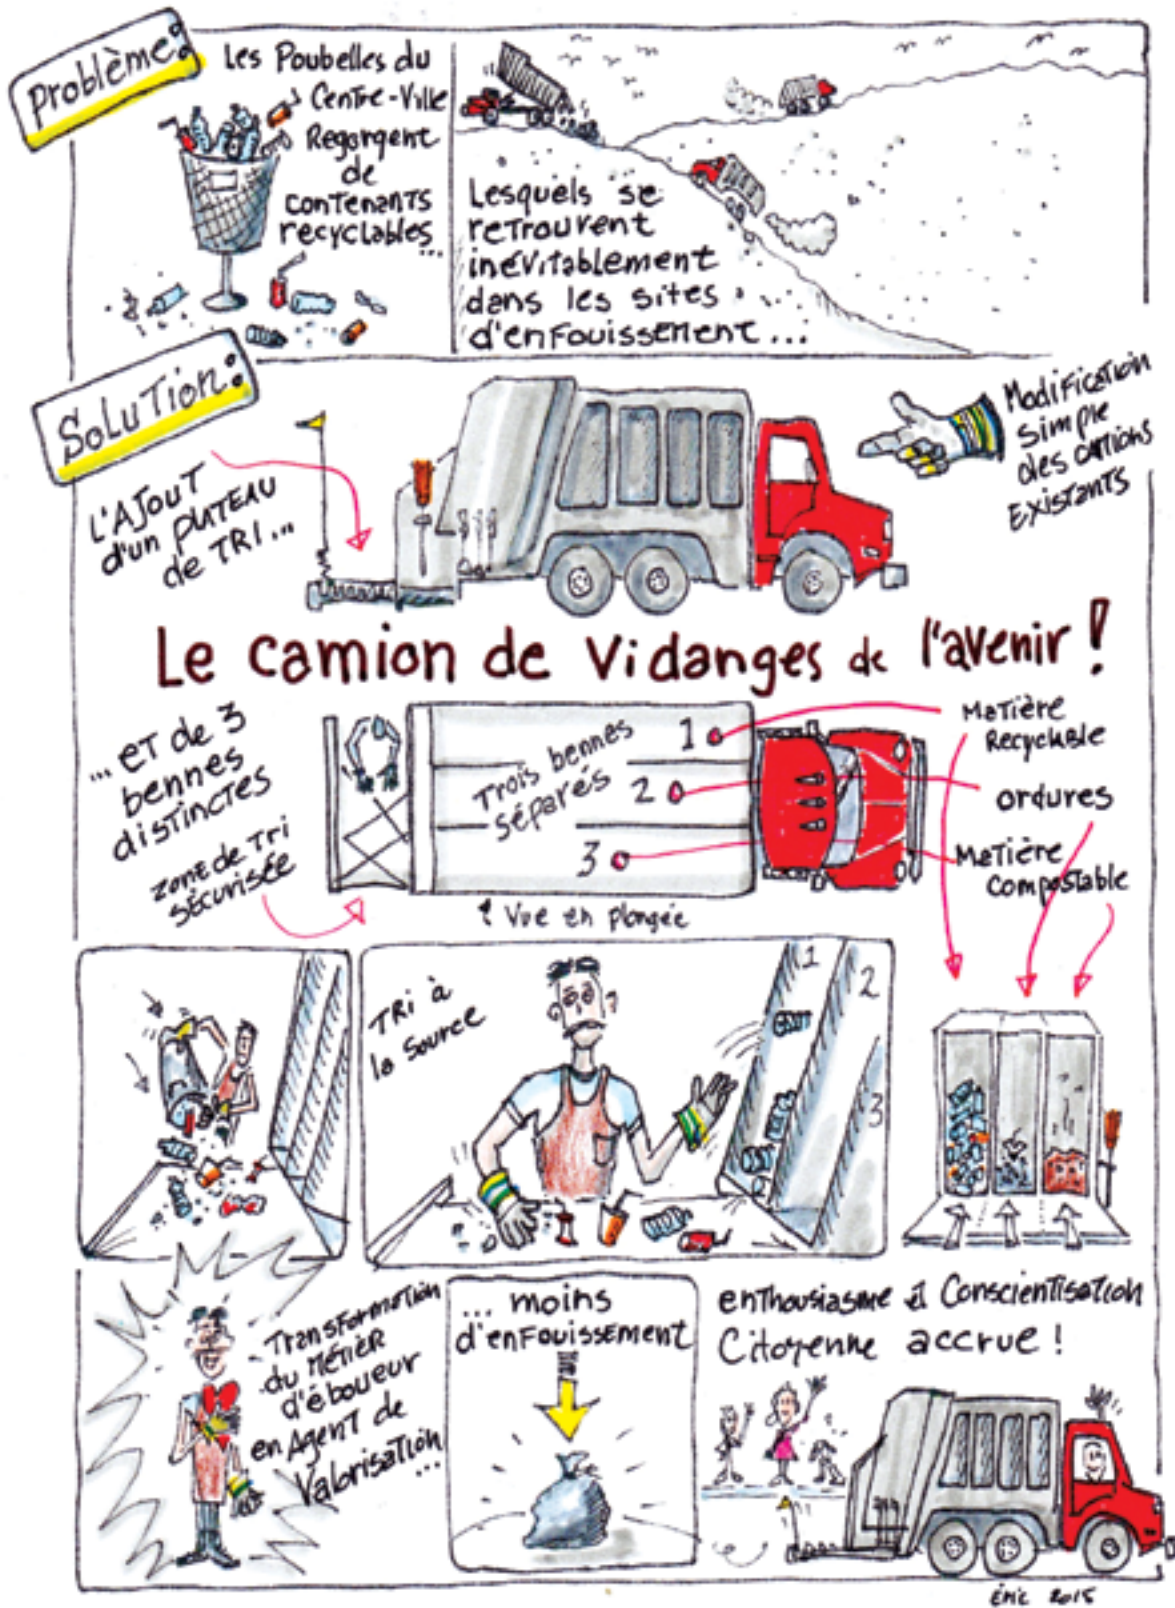 Problème:
Les Poubelles du
Centre-Ville
Regorgent
de
contenants
recyclables
...
Lesquels se
retrouvent
inévitablement
dans les sites
d'enfouissement...
Solution:
L'AJOUT
d'un PLATEAU
de TRI...
Modification
simple
des camions
Existants
Le camion de Vidanges de l'avenir!
...et de 3
bennes
distinctes
zone de Tri
sécurisée
Trois bennes
séparés
1
2
3
Matière
Recyclable
ordures
Matière
Compostable
Vue en plongée
TRi à
la source
1
2
3
Transformation
du métier
d'éboueur
en Agent de
Valorisation
...
... moins
d'enfouissement
enthousiasme et Conscientisation
Citoyenne accrue!
Éric 2015